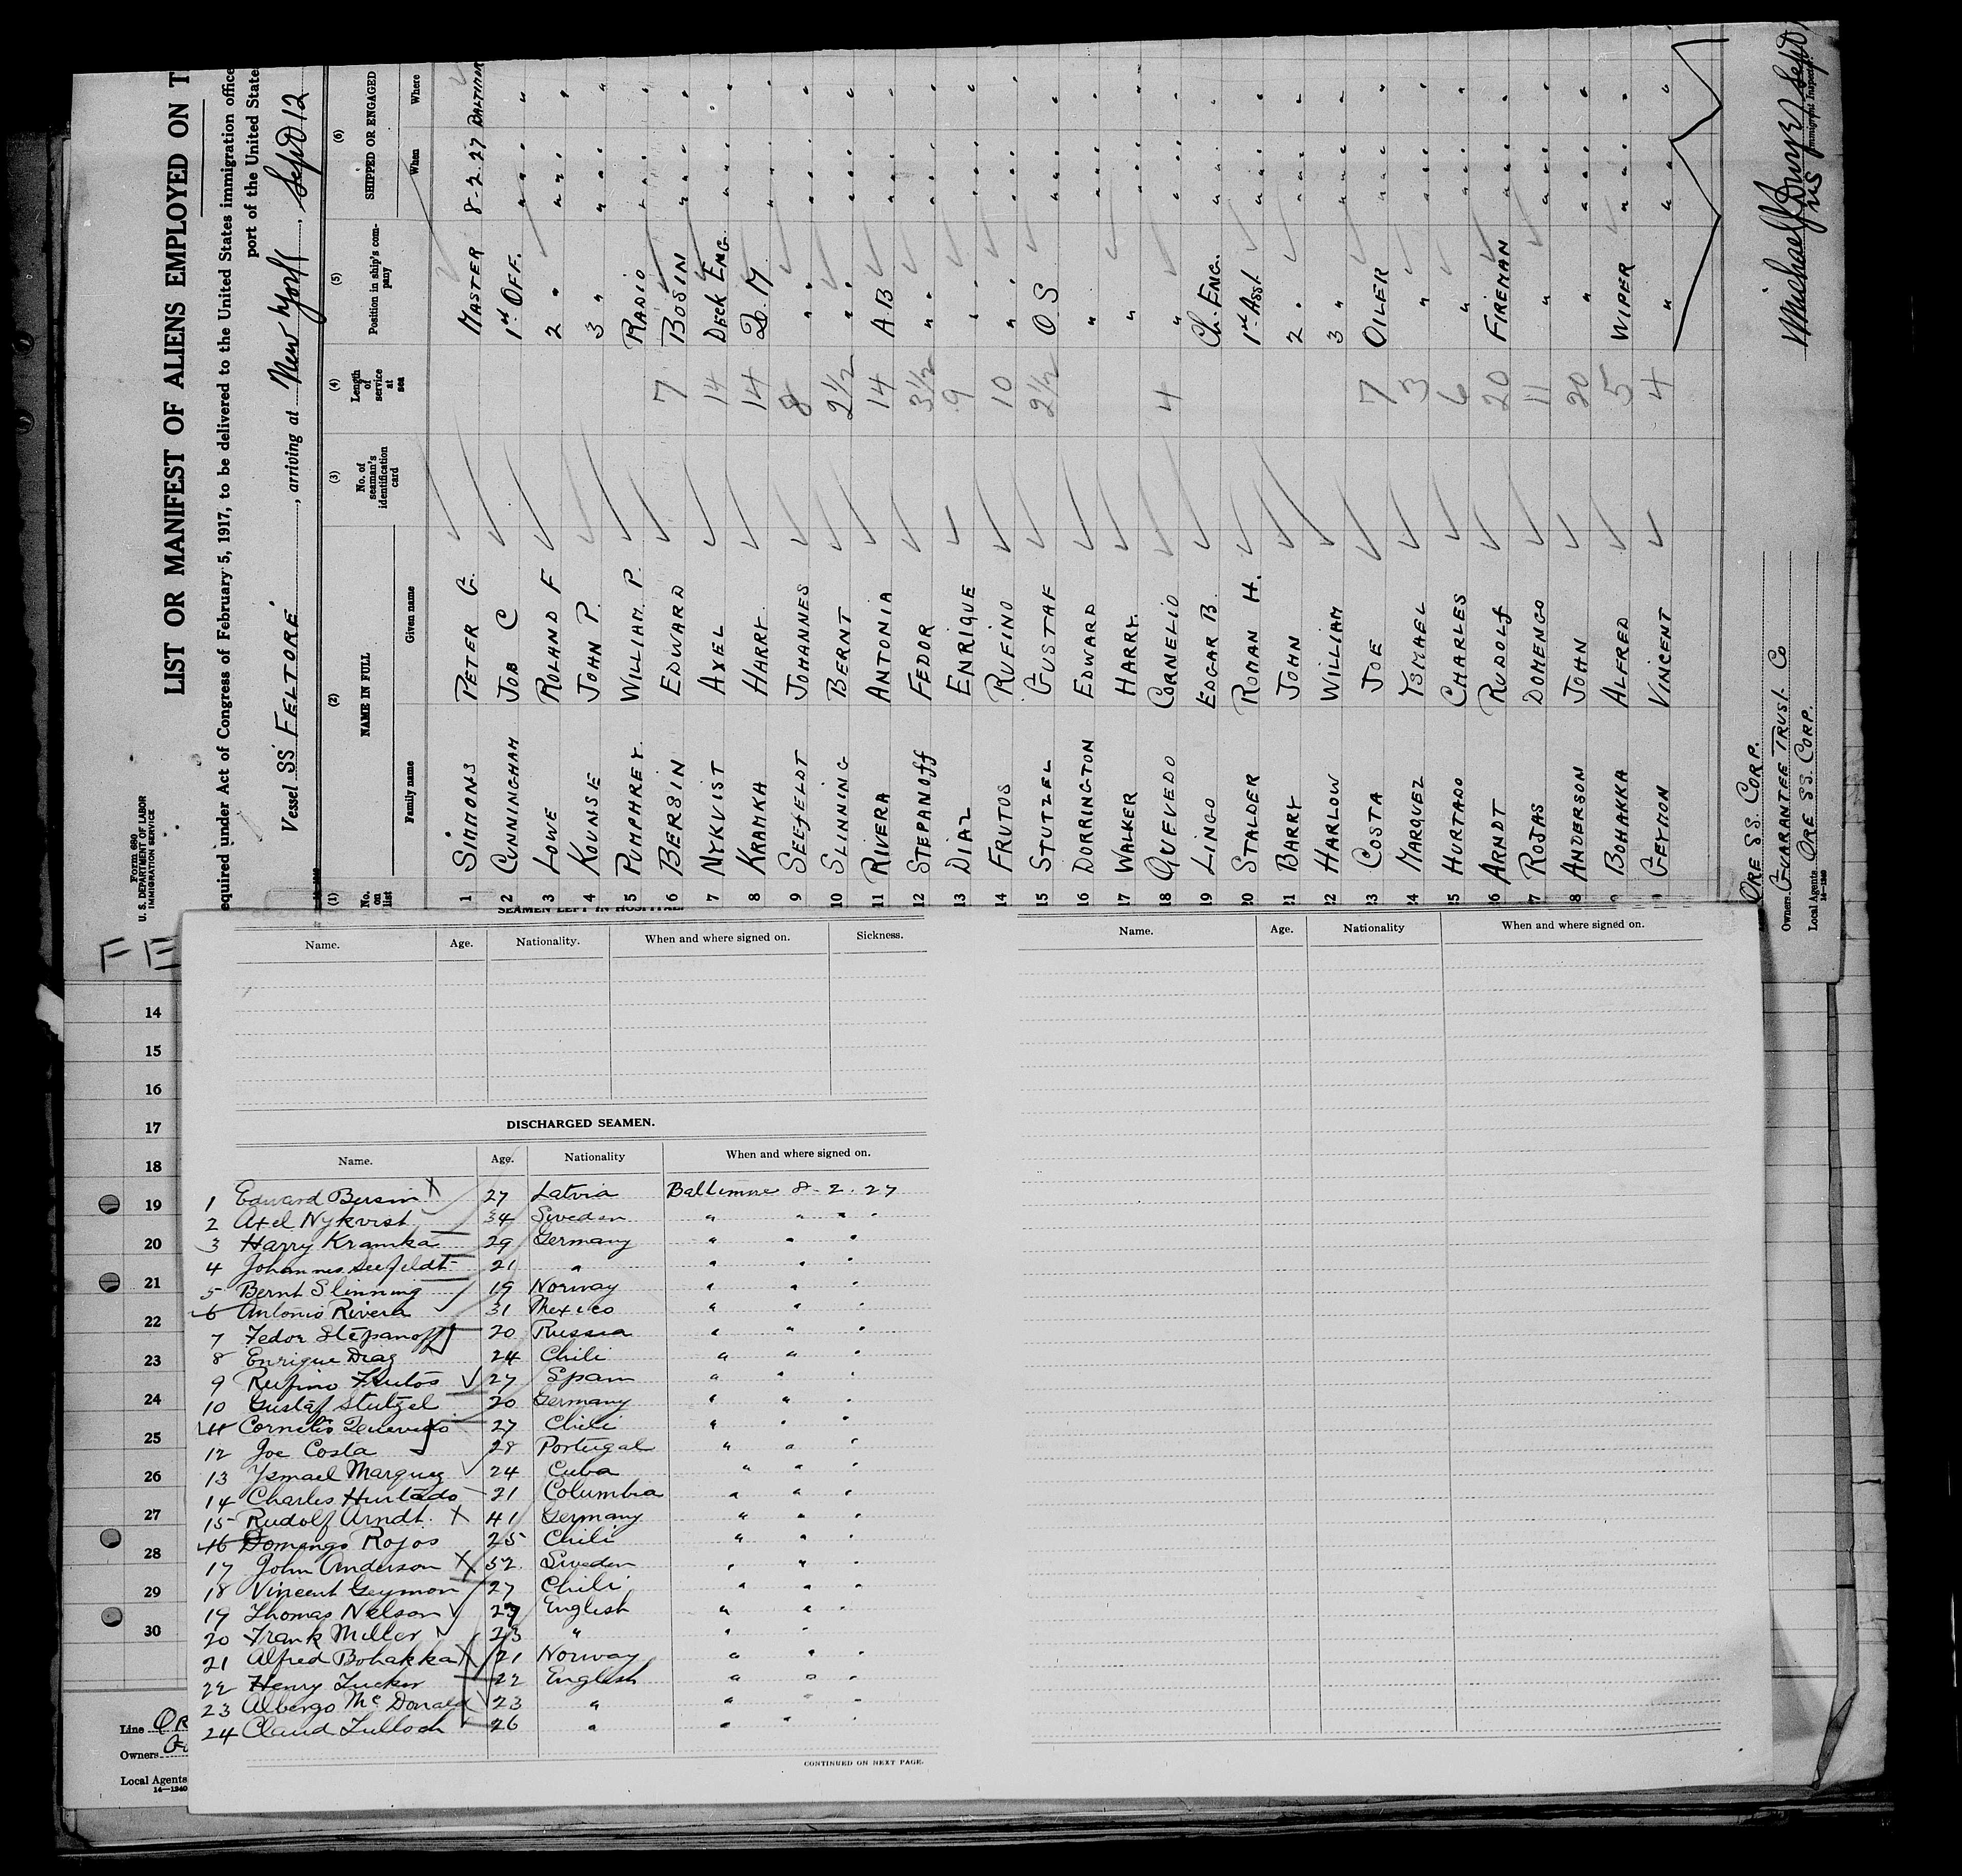 Form 680
U. S. DEPARTMENT OF LABOR
IMMIGRATION SERVICE
LIST OR MANIFEST OF ALIENS EMPLOYED ON T
equired under Act of Congress of February 5, 1917, to be delivered to the United States immigration office
port of the United State
Vessel SS FELTORE, arriving at New York Sept 12
(1) (2) (3) (4) (5) (6)
No. on list NAME IN FULL No. of seaman's identification card Length of service at sea Position in ship's com-pany SHIPPED OR ENGAGED
Family name Given name When Where
1 SIMMONS PETER G. MASTER 8-2-27 BALTIMOR
2 CUNNINGHAM JOB C 1st OFF. " " " "
3 LOWE ROLAND F 2 " " " " "
4 KOUNSE JOHN P. 3 " " " " "
5 PUMPHREY WILLIAM P. RADIO " " " "
6 BERSIN EDWARD 7 BOSIN " " " "
7 NYKVIST AXEL 14 DECK ENG. " " " "
8 KRAMKA HARRY 14 Q. M " " " "
9 SEEFELDT JOHANNES 8 " " " " " "
10 SLINNING BERNT 2½ " " " " " "
11 RIVERA ANTONIA 14 A.B " " " "
12 STEPANOff FEDOR 3½ " " " " " "
13 DIAZ ENRIQUE 9 " " " " "
14 FRUTOS RUFINO 10 " " " " "
15 STUTZEL GUSTAF 2½ O.S " " " "
16 DORRINGTON EDWARD " " " " "
17 WALKER HARRY " " " " "
18 QUEVEDO CORNELIO 4 " " " " "
19 LINGO EDGAR B. Ch. ENG. " " " "
20 STALDER ROMAN H. 1st Asst. " " " "
21 BARRY JOHN 2 " " " " "
22 HARLOW WILLIAM 3 " " " " "
23 COSTA JOE 7 OILER " " " "
24 MARQUEZ YSMAEL 3 " " " " "
25 HURTADO CHARLES 6 " " " " "
26 ARNDT RUDOLf 20 FIREMAN " " " "
27 ROJAS DOMENGO 11 " " " " "
28 ANDERSON JOHN 20 " " " " "
BOHAKKA ALFRED 5 WIPER " " " "
GEYMON VINCENT 4 " " " " "
ORE SS. CORP.
Owners GUARANTEE TRUST. CO
Local Agents ORE SS. CORP.
14—1240
Immigrant Inspector
FE
14
15
16
17
18
19
20
21
22
23
24
25
26
27
28
29
30
Line OR
Owners
Local Agents
14—1240
SEAMEN LEFT IN HOSPITAL.
Name. Age. Nationality. When and where signed on. Sickness.
DISCHARGED SEAMEN.
Name. Age. Nationality When and where signed on.
1 Edward Bersin X 27 Latvia Baltimore 8-2-27
2 Axel Nykvist 34 Sweden " " " "
3 Harry Kramka 29 Germany " " "
4 Johannes Seefeldt 21 " " " "
5 Bernt Slinning 19 Norway " " "
6 Antonio Rivera 31 Mexico " " "
7 Fedor Stepanoff 20 Russia " " "
8 Enrique Diaz 24 Chili " " "
9 Rufino Frutos 27 Spain " " "
10 Gustaf Stutzel 20 Germany " " "
11 Cornelio 27 Chili " " "
12 Joe Costa 28 Portugal " " "
13 Ysmael Marquez 24 Cuba " " "
14 Charles Hurtado 21 Columbia " " "
15 Rudolf Arndt. X 41 Germany " " "
16 Domingo Rojos 25 Chili " " "
17 John Anderson X 52 Sweden " " "
18 Vincent Geymon 27 Chili " " "
19 Thomas Nelson 27 English " " "
20 Frank Miller 23 " " "
21 Alfred Bohakka X 21 Norway " " "
22 Henry Tucker 22 English " " "
23 Albergo Mc Donald 23 " " " "
24 Claud Tulloch 26 " " " "
CONTINUED ON NEXT PAGE.
Name. Age. Nationality When and where signed on.